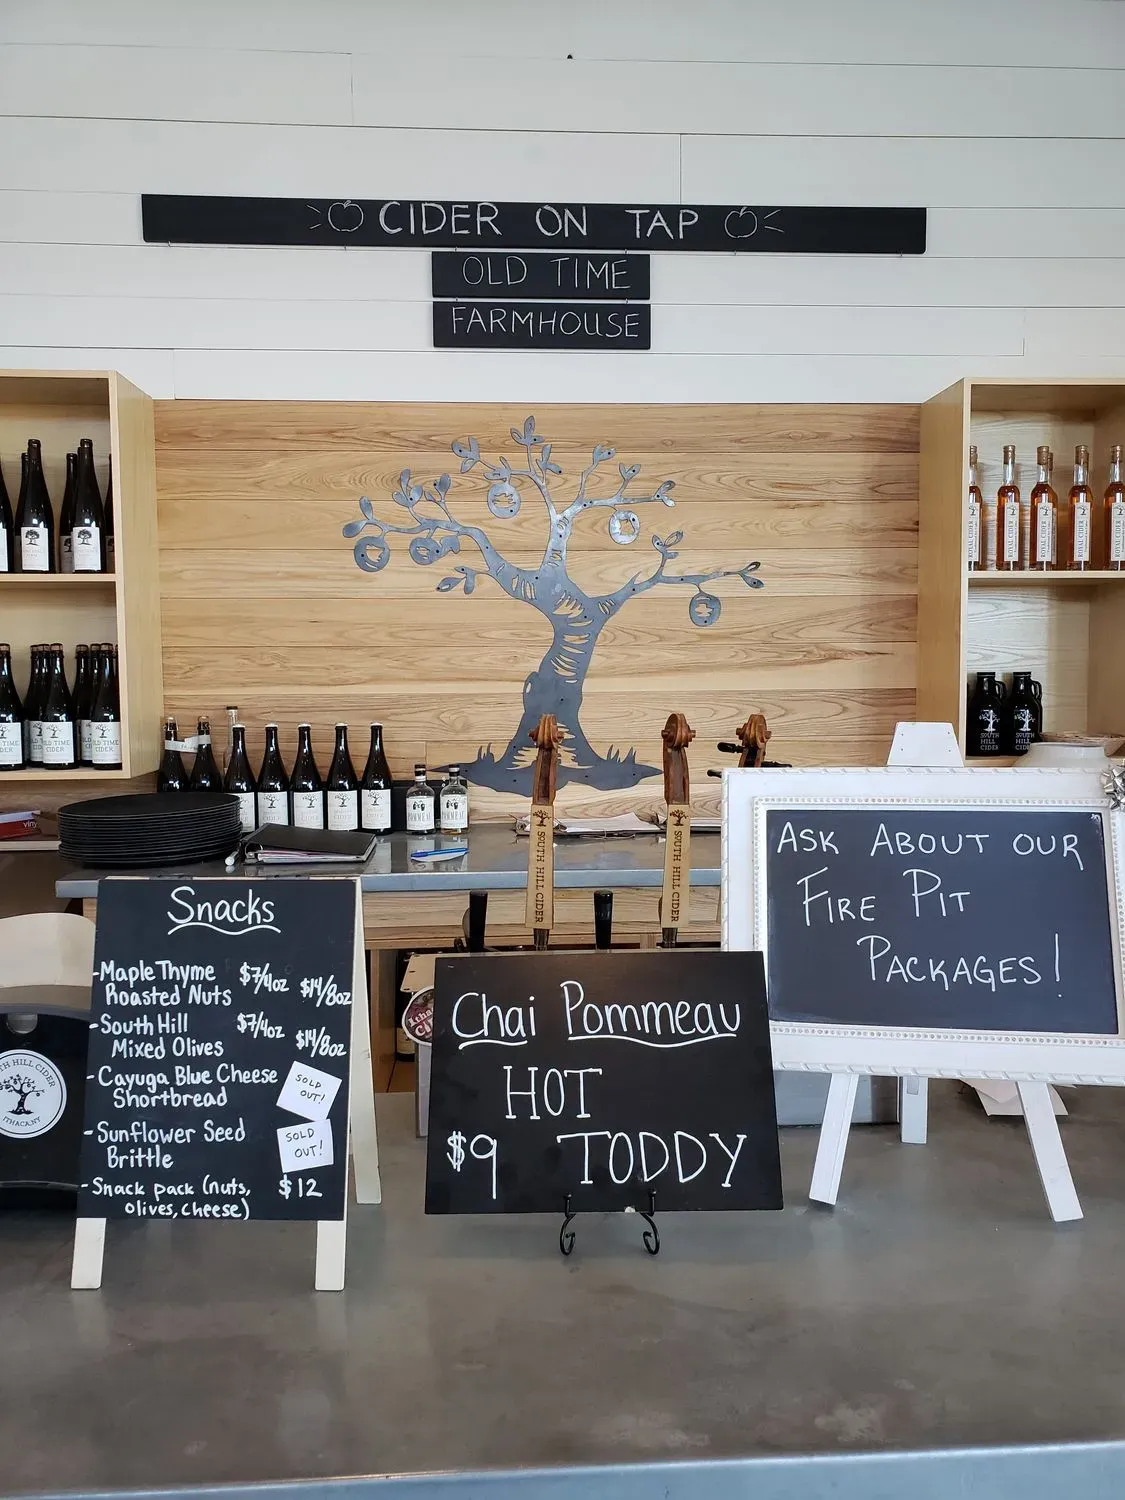 CIDER ON TAP
OLD TIME
FARMHOUSE
ROYAL CIDER
ROYAL CIDER
ROYAL CIDER
ROYAL CIDER
OLD TIME
CIDER
SOUTH
HILL
CIDER
SOUTH
HILL
CIDER
POMMEAU
SOUTH HILL CIDER
SOUTH HILL CIDER
ASK ABOUT OUR
FIRE PIT
PACKAGES!
Snacks
-Maple Thyme $7/4oz $14/8oz
Roasted Nuts
-South Hill $7/4oz $14/8oz
Mixed Olives
-Cayuga Blue Cheese
Shortbread
SOLD
OUT!
-Sunflower Seed
Brittle
SOLD
OUT!
-Snack pack (nuts, $12
olives, cheese)
Chai Pommeau
HOT
$9 TODDY
TH HILL CIDER
ITHACA, NY